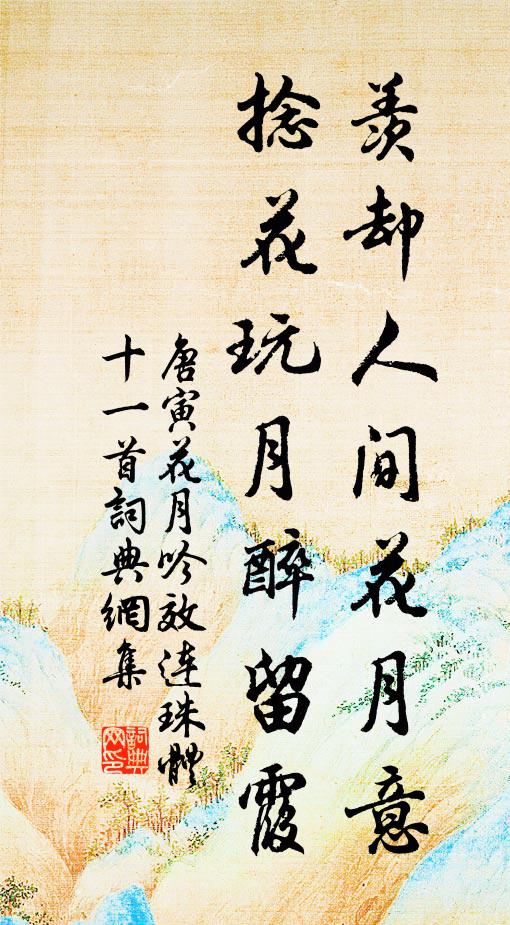 羨却人間花月意
捻花玩月醉留霞
唐寅花月吟效連珠體
十一首詞典網集
詞典
网印